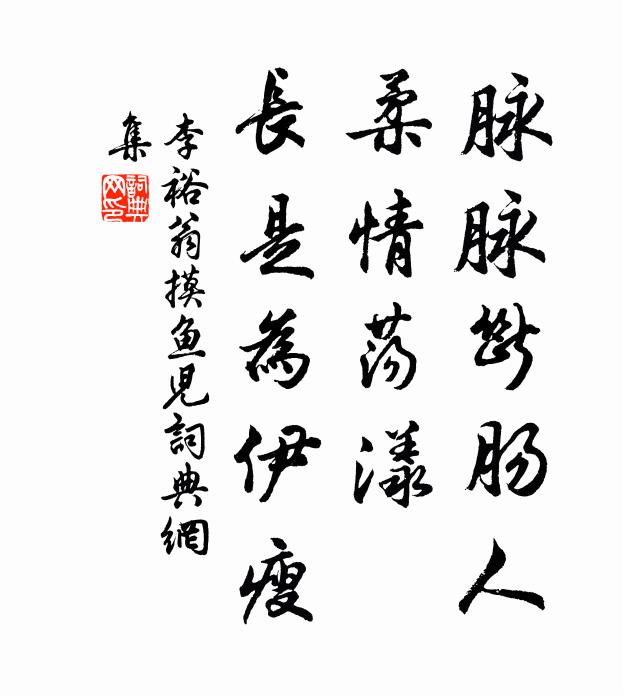 脉脉斷肠人
柔情荡漾
長是為伊瘦
李裕翁摸鱼児詞典網
集
詞典
网印